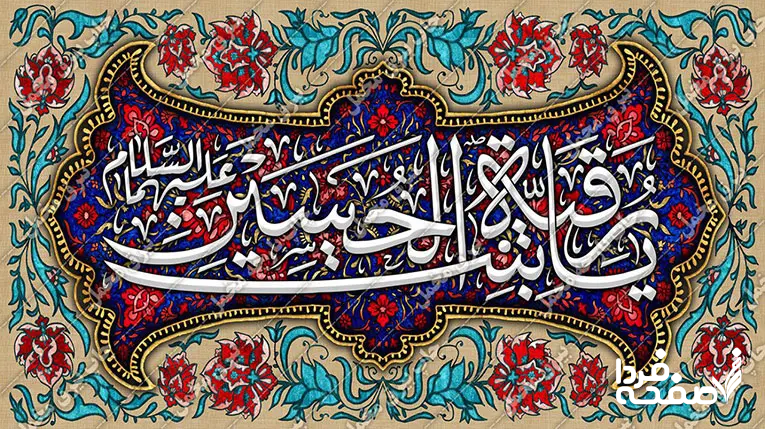 يا رُقَيَّة بِنتَ الحُسَين عَلَيهِمَا السَّلام
صفحه فردا